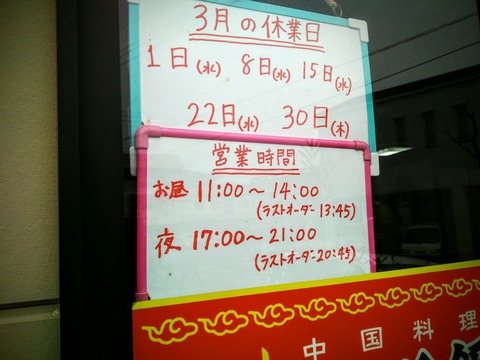 3月の休業日
1日(水) 8日(水) 15日(水)
22日(水) 30日(木)
営業時間
お昼 11:00〜14:00
(ラストオーダー 13:45)
夜 17:00〜21:00
(ラストオーダー20:45)
中国料理